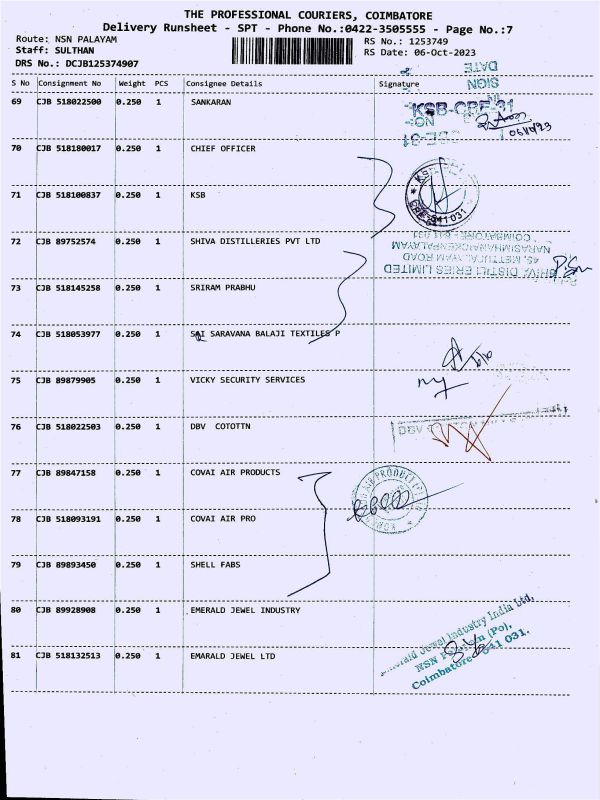 THE PROFESSIONAL COURIERS, COIMBATORE
Delivery Runsheet - SPT - Phone No.:0422-3505555 - Page No.:7
Route: NSN PALAYAM
RS No.: 1253749
Staff: SULTHAN
RS Date: 06-Oct-2023
DRS No.: DCJB125374907
DATE
SIGN
S No Consignment No Weight PCS Consignee Details Signature
69 CJB 518022500 0.250 1 SANKARAN
KSB-CBE-31
70 CJB 518180017 0.250 1 CHIEF OFFICER
71 CJB 518100837 0.250 1 KSB
KSB
641 031
72 CJB 89752574 0.250 1 SHIVA DISTILLERIES PVT LTD
SHIVA DISTILLERIES LIMITED
45, METTUPALAYAM ROAD
NARASIMHANAICKENPALAYAM
COIMBATORE - 641 031
73 CJB 518145258 0.250 1 SRIRAM PRABHU
74 CJB 518053977 0.250 1 SRI SARAVANA BALAJI TEXTILES P
75 CJB 89879905 0.250 1 VICKY SECURITY SERVICES
76 CJB 518022503 0.250 1 DBV COTOTTN
77 CJB 89847158 0.250 1 COVAI AIR PRODUCTS
AIR PRODUCTS
78 CJB 518093191 0.250 1 COVAI AIR PRO
79 CJB 89893450 0.250 1 SHELL FABS
80 CJB 89928908 0.250 1 EMERALD JEWEL INDUSTRY
81 CJB 518132513 0.250 1 EMARALD JEWEL LTD
Emerald Jewel Industry India Ltd,
NSN (Po),
Coimbatore 641 031.